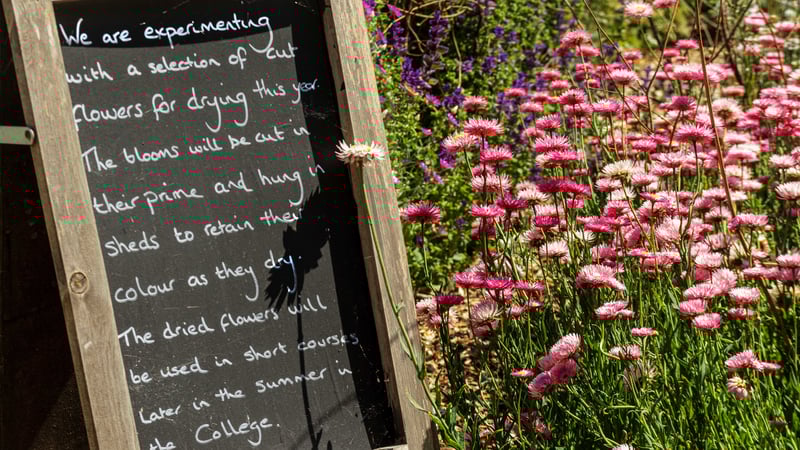 We are experimenting
with a selection of cut
flowers for drying this year
The blooms will be cut in
their prime and hung in
sheds to retain their
colour as they dry.
The dried flowers will
be used in short courses
later in the summer in
the College.